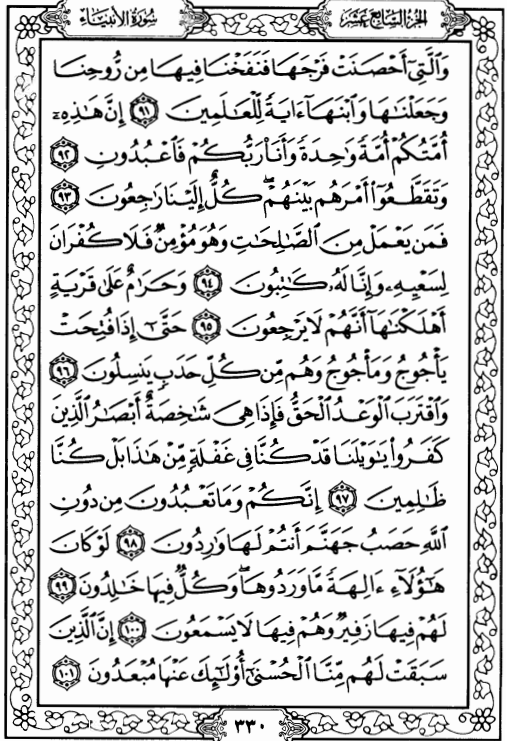 الجزء السابع عشر
سورة الأنبياء
وَٱلَّتِىٓ أَحْصَنَتْ فَرْجَهَا فَنَفَخْنَا فِيهَا مِن رُّوحِنَا
وَجَعَلْنَٰهَا وَٱبْنَهَآ ءَايَةً لِّلْعَٰلَمِينَ ٩١ إِنَّ هَٰذِهِۦٓ
أُمَّتُكُمْ أُمَّةً وَٰحِدَةً وَأَنَا۠ رَبُّكُمْ فَٱعْبُدُونِ ٩٢
وَتَقَطَّعُوٓا۟ أَمْرَهُم بَيْنَهُمْ ۖ كُلٌّ إِلَيْنَا رَٰجِعُونَ ٩٣
فَمَن يَعْمَلْ مِنَ ٱلصَّٰلِحَٰتِ وَهُوَ مُؤْمِنٌ فَلَا كُفْرَانَ
لِسَعْيِهِۦ وَإِنَّا لَهُۥ كَٰتِبُونَ ٩٤ وَحَرَٰمٌ عَلَىٰ قَرْيَةٍ
أَهْلَكْنَٰهَآ أَنَّهُمْ لَا يَرْجِعُونَ ٩٥ حَتَّىٰٓ إِذَا فُتِحَتْ
يَأْجُوجُ وَمَأْجُوجُ وَهُم مِّن كُلِّ حَدَبٍ يَنسِلُونَ ٩٦
وَٱقْتَرَبَ ٱلْوَعْدُ ٱلْحَقُّ فَإِذَا هِىَ شَٰخِصَةٌ أَبْصَٰرُ ٱلَّذِينَ
كَفَرُوا۟ يَٰوَيْلَنَا قَدْ كُنَّا فِى غَفْلَةٍ مِّنْ هَٰذَا بَلْ كُنَّا
ظَٰلِمِينَ ٩٧ إِنَّكُمْ وَمَا تَعْبُدُونَ مِن دُونِ
ٱللَّهِ حَصَبُ جَهَنَّمَ أَنتُمْ لَهَا وَٰرِدُونَ ٩٨ لَوْ كَانَ
هَٰٓؤُلَآءِ ءَالِهَةً مَّا وَرَدُوهَا ۖ وَكُلٌّ فِيهَا خَٰلِدُونَ ٩٩
لَهُمْ فِيهَا زَفِيرٌ وَهُمْ فِيهَا لَا يَسْمَعُونَ ١٠٠ إِنَّ ٱلَّذِينَ
سَبَقَتْ لَهُم مِّنَّا ٱلْحُسْنَىٰٓ أُو۟لَٰٓئِكَ عَنْهَا مُبْعَدُونَ ١٠١
٣٣٠